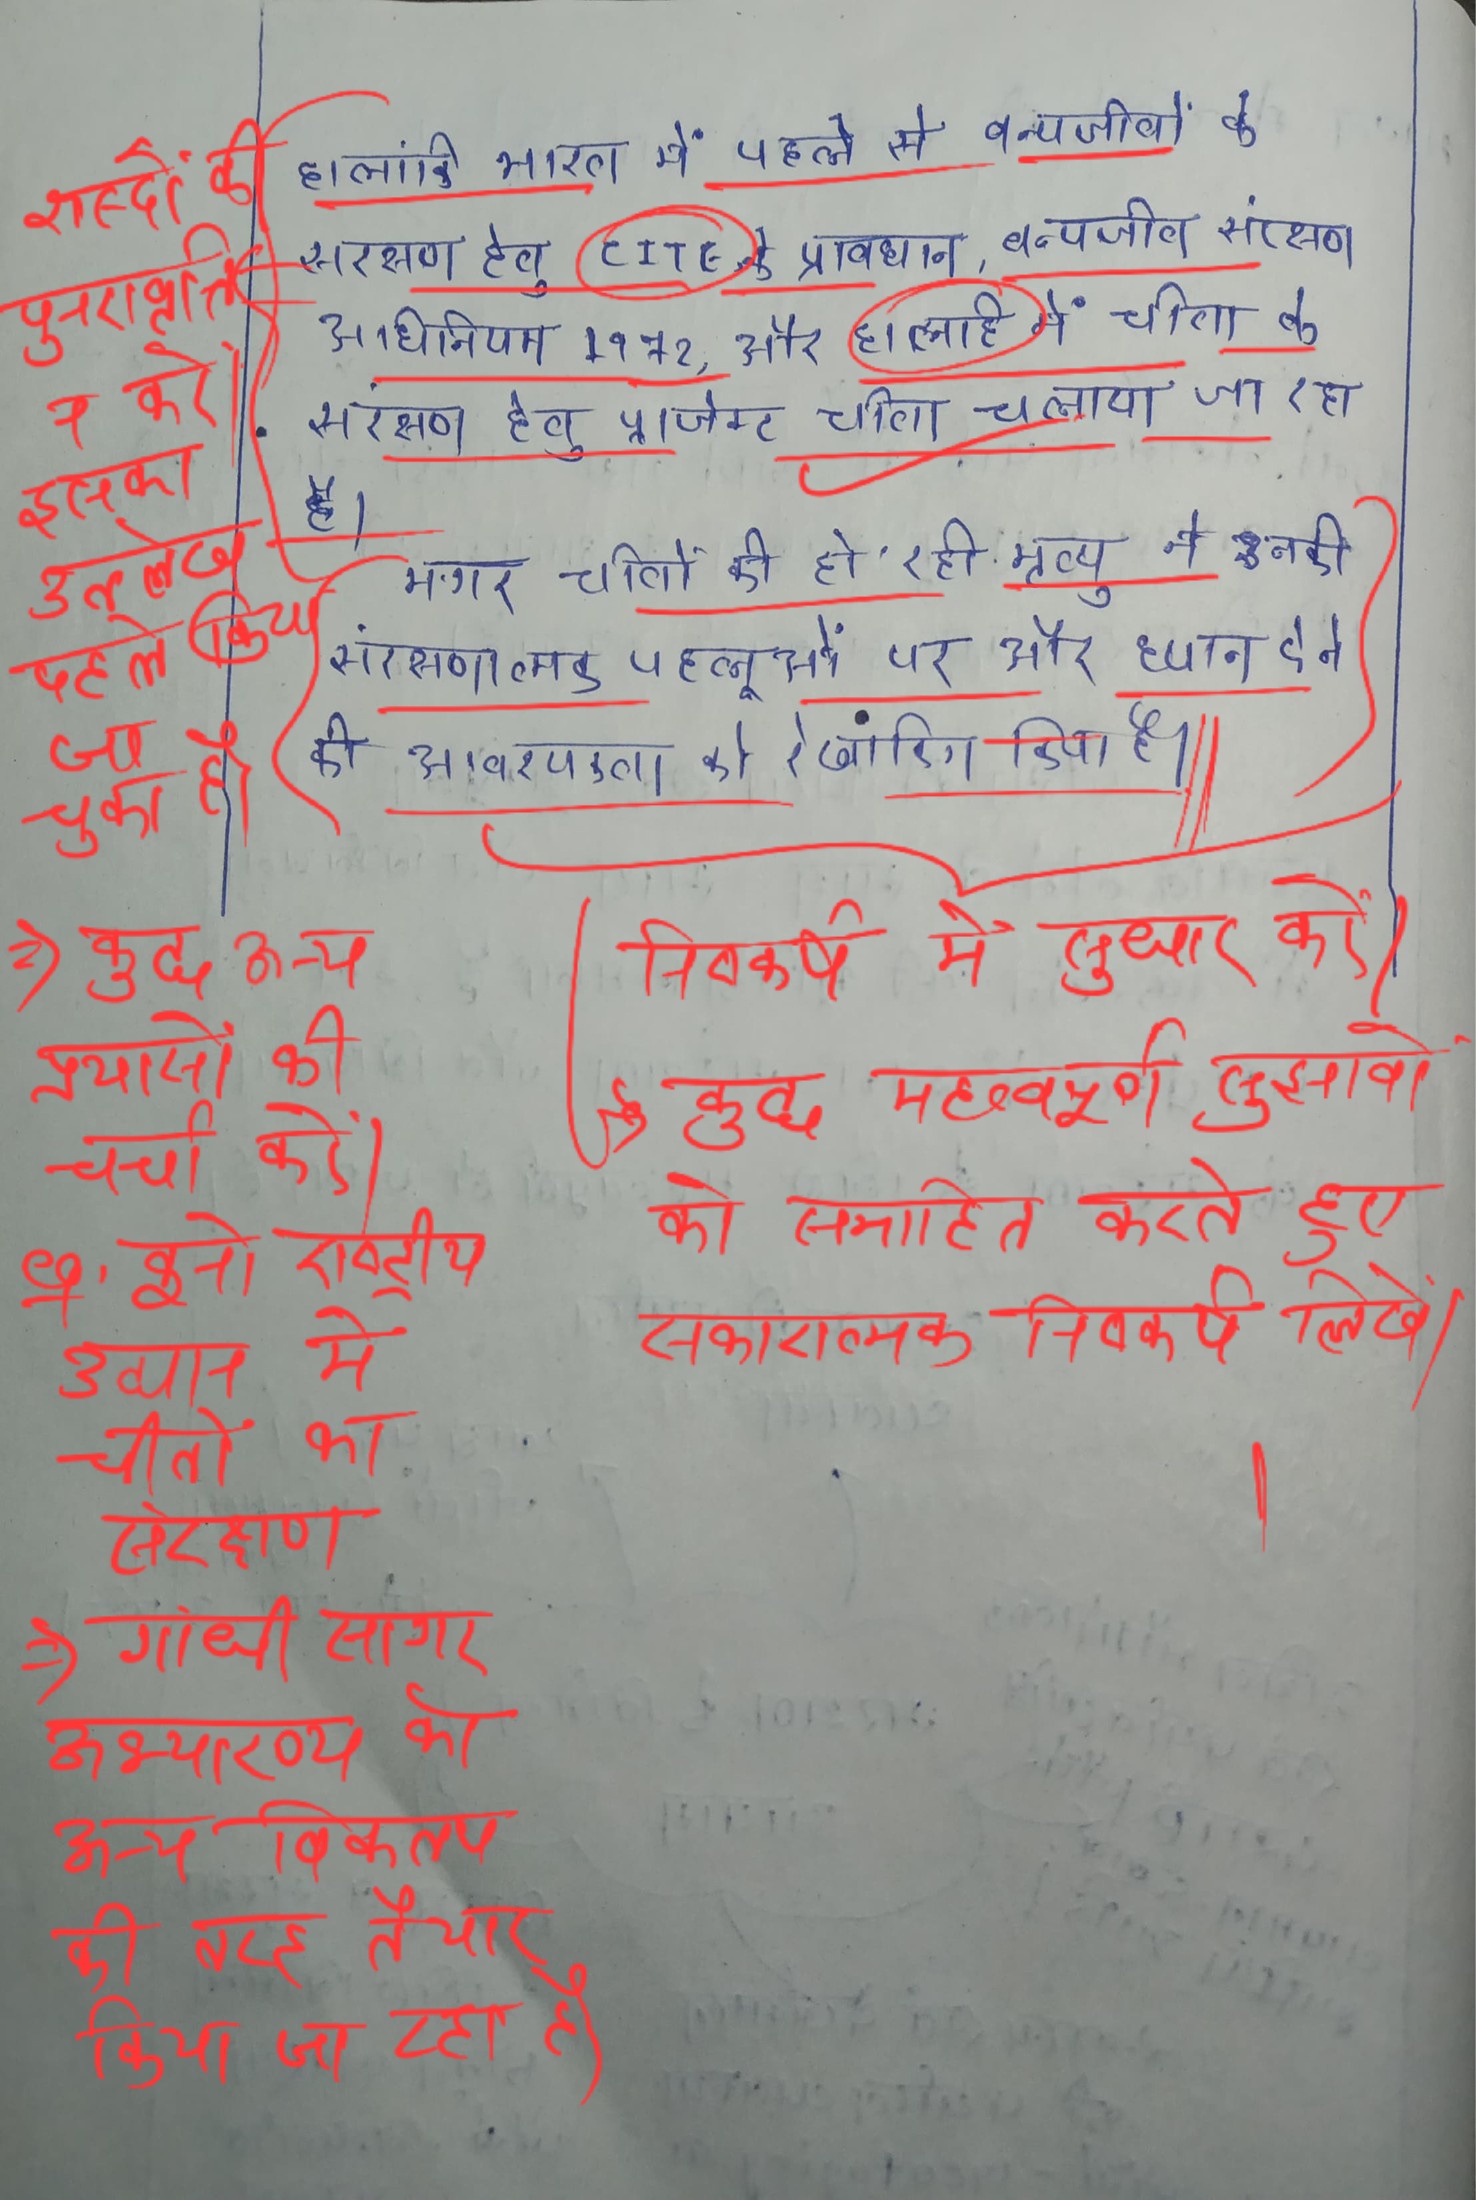 हालांकि भारत में पहले से वन्यजीवों के
सरक्षण हेतु CITE के प्रावधान, वन्यजीव संरक्षण
अधिनियम 1972, और हालहि में चीता के
संरक्षण हेतु प्राजेक्ट चीता चलाया जा रहा
है।
मगर चीतों की हो रही मृत्यु ने उनकी
संरक्षणात्मक पहलूओं पर और ध्यान देने
की आवश्यकता को रेखांकित किया है।
शब्दों की
पुनरावृत्ति
न करें।
इसका
उल्लेख
पहले किया
जा
चुका है।
⇒ कुछ अन्य
प्रयासों की
चर्चा करें।
कूनो राष्ट्रीय
उद्यान में
चीतों का
संरक्षण
⇒ गांधी सागर
अभ्यारण्य को
अन्य विकल्प
की तरह तैयार
किया जा रहा है।
निष्कर्ष में सुधार करें।
कुछ महत्वपूर्ण सुझावों
को समाहित करते हुए
सकारात्मक निष्कर्ष लिखें।